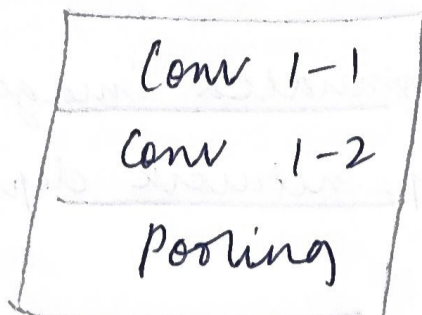 Conv 1-1
Conv 1-2
Pooling